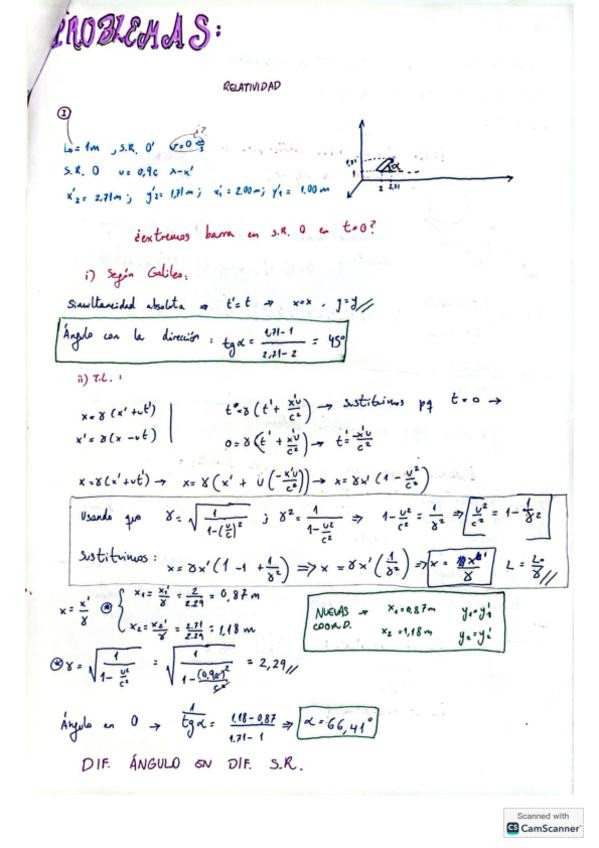 PROBLEMAS:
RELATIVIDAD
①
L₀ = 1m , S.R. O' v=0 ?
S.R. O u = 0,9c x-x'
x'₂ = 2.71m ; y'₂ = 1,71m ; x'₁ = 2.00m ; y'₁ = 1.00m
1,71
1
α
2 2,71
¿extremos barra en S.R. O en t=0?
i) Según Galileo:
Simultaneidad absoluta → t'=t → x=x , y=y //
Ángulo con la dirección : tgα = (1,71-1)/(2,71-2) = 45°
ii) T.L. :
x=γ(x'+ut') t=γ(t'+x'u/c²) → sustituimos pq t=0 →
x'=γ(x-ut) 0=γ(t'+x'u/c²) → t'=-x'u/c²
x=γ(x'+ut') → x=γ(x'+u(-x'u/c²)) → x=γx'(1-u²/c²)
Usando que γ=√(1/(1-(u/c)²)) ; γ²=1/(1-u²/c²) ⇒ 1-u²/c²=1/γ² ⇒ u²/c²=1-1/γ²
Sustituimos : x=γx'(1-1+1/γ²) ⇒ x=γx'(1/γ²) ⇒ x=x'/γ L=L₀/γ //
x=x'/γ ⊛ { x₁=x₁'/γ=2/2.29=0,87m
x₂=x₂'/γ=2.71/2.29=1,18m
NUEVAS → x₁=0,87m y₁=y₁'
COORD. x₂=1,18m y₂=y₂'
⊛ γ=√(1/(1-u²/c²)) = √(1/(1-(0,9c)²/c²)) = 2,29 //
Ángulo en O → 1/tgα = (1,18-0,87)/(1.71-1) ⇒ α=66,41°
DIF. ÁNGULO EN DIF. S.R.
Scanned with
CS CamScanner